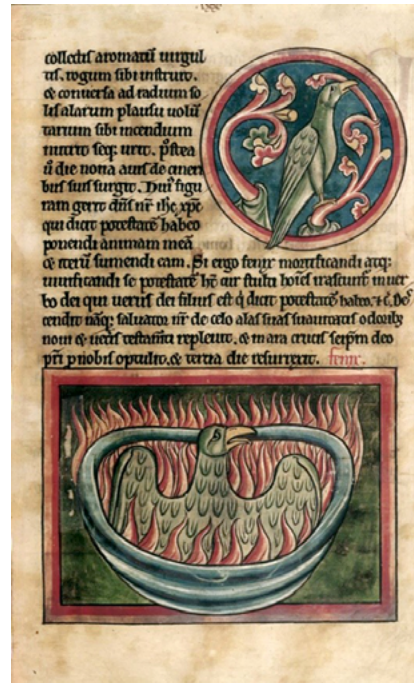 collectis aromatū uirgul
tis. rogum sibi instruit.
& conuersa ad radium so
lis alarum plausu uolū
tarium sibi incendium
nutrit seq; urit. postea
ū die nona auis de cineri
bus suis surgit. Huiꝰ figu
ram gerit dn̄s nr̄ ihc xp̄c
qui dicit potestatē habeo
ponendi animam meā
& iterū sumendi eam. Si ergo fenix mortificandi atq;
uiuificandi se potestatē h̄t cur stulti hoīes irascunt̄ in uer
bo dei qui uerus dei filius est q̄ dicit potestatē habeo. &c. Des
cendit nāq; saluator nr̄ de celo alas suas suauitatis odorib;
noui & ueteris testam̄ti repleuit. & in ara crucis seip̄m deo
pr̄i p nobis optulit. & tertia die resurrexit. fenix.